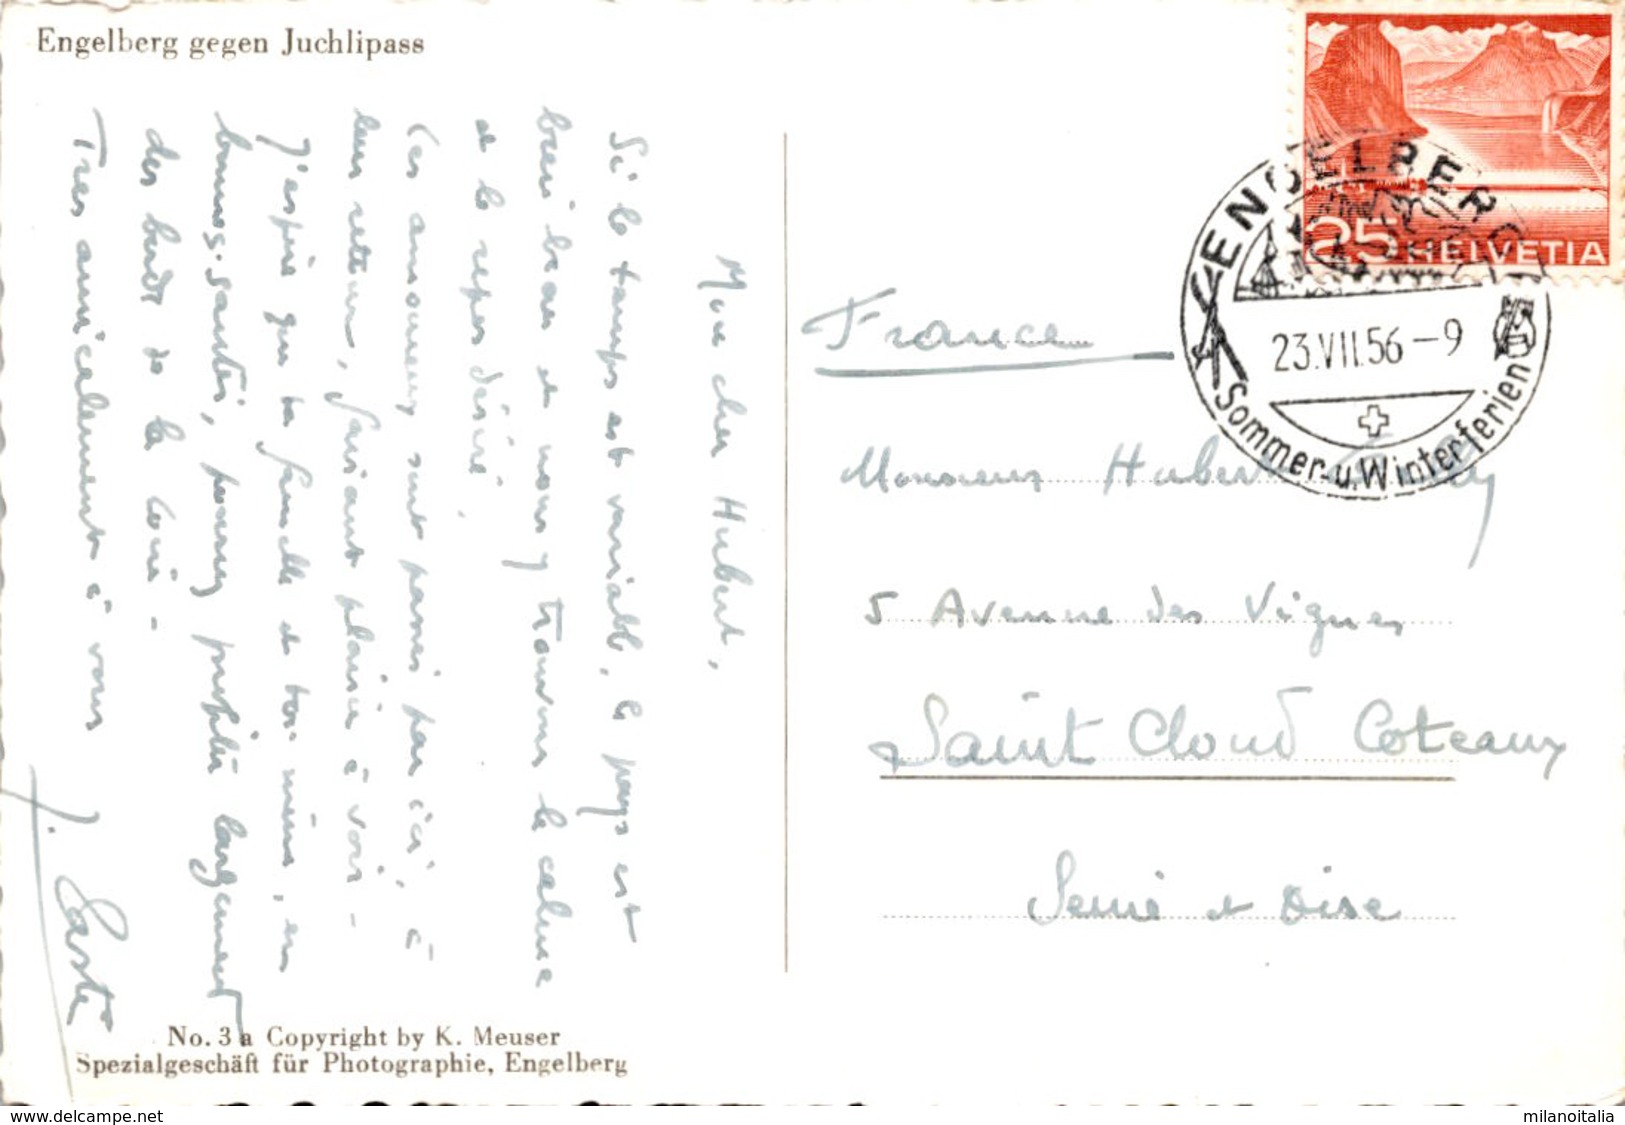 Engelberg gegen Juchlipass
Mon cher Hubert,
Si le temps est variable, le pays est
bien beau et nous y trouvons le calme
et le repos désiré.
Les amoureux sont passés par ici, à
leur retour, faisant plaisir à voir -
J'espère que ta famille et toi-même, en
bonnes santés, pouvez profiter largement
des bords de la
Très amicalement à vous
J.
No. 3 a Copyright by K. Meuser
Spezialgeschäft für Photographie, Engelberg
25 HELVETIA
ENGELBERG
23.VII.56-9
Sommer-u.Winterferien
France
Monsieur Hubert
5 Avenue des Vignes
Saint Cloud Coteaux
Seine et Oise
www.delcampe.net
milanoitalia